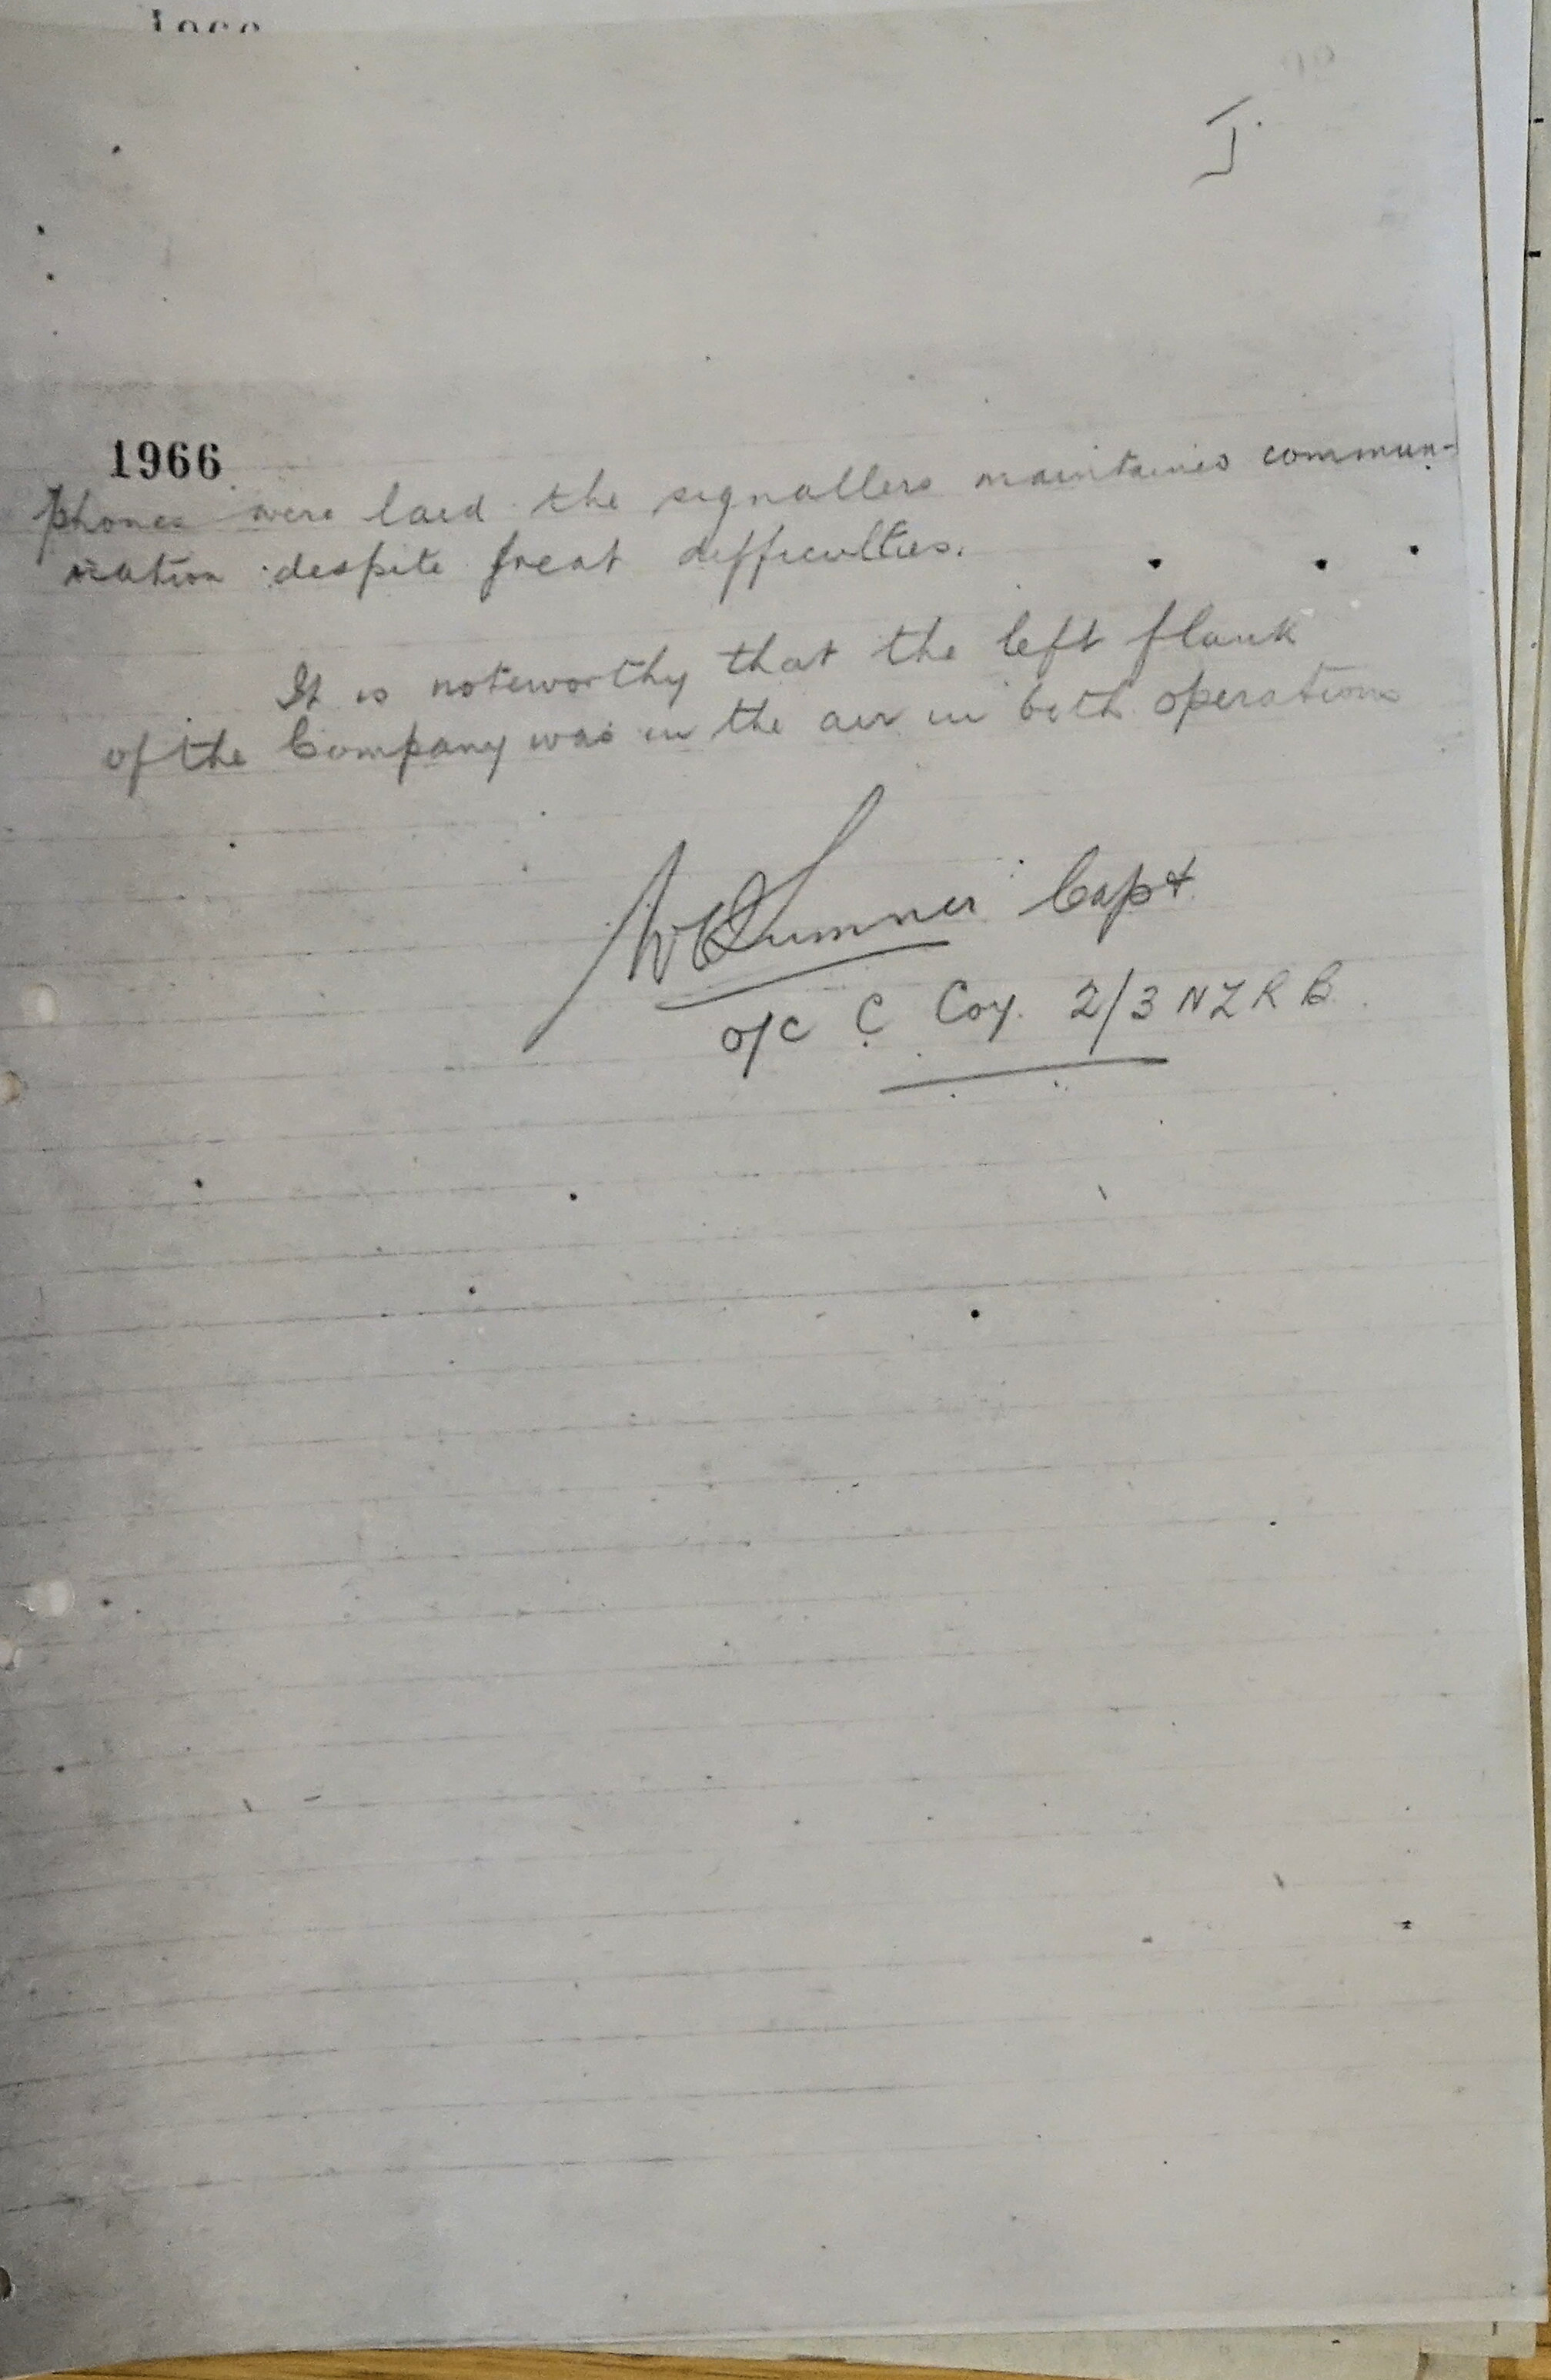 I
1966
phones were laid the signallers maintained commun-
ication despite great difficulties.
It is noteworthy that the left flank
of the Company was in the air in both operations
Sumner Capt
o/c C Coy. 2/3 NZRB.